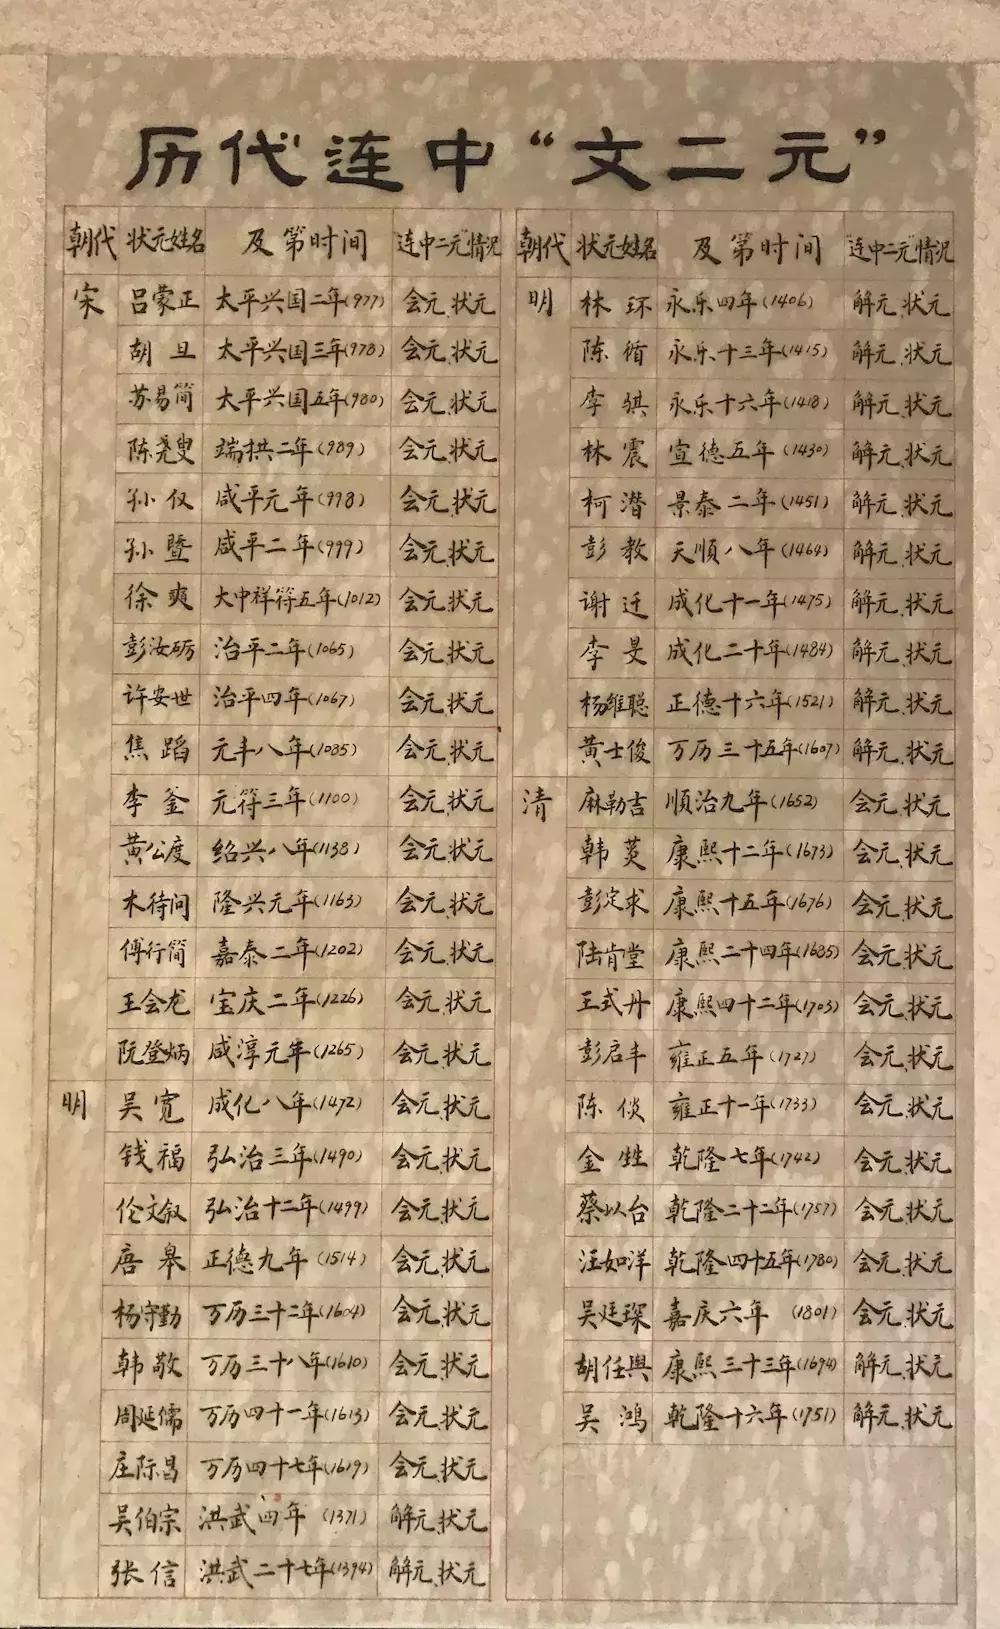 历代连中“文二元”
朝代 状元姓名 及第时间 “连中二元”情况
宋 吕蒙正 太平兴国二年(977) 会元、状元
胡旦 太平兴国三年(978) 会元、状元
苏易简 太平兴国五年(980) 会元、状元
陈尧叟 端拱二年(989) 会元、状元
孙仅 咸平元年(998) 会元、状元
孙暨 咸平二年(999) 会元、状元
徐奭 大中祥符五年(1012) 会元、状元
彭汝砺 治平二年(1065) 会元、状元
许安世 治平四年(1067) 会元、状元
焦蹈 元丰八年(1085) 会元、状元
李釜 元符三年(1100) 会元、状元
黄公度 绍兴八年(1138) 会元、状元
木待问 隆兴元年(1163) 会元、状元
傅行简 嘉泰二年(1202) 会元、状元
王会龙 宝庆二年(1226) 会元、状元
阮登炳 咸淳元年(1265) 会元、状元
明 吴宽 成化八年(1472) 会元、状元
钱福 弘治三年(1490) 会元、状元
伦文叙 弘治十二年(1499) 会元、状元
唐皋 正德九年(1514) 会元、状元
杨守勤 万历三十二年(1604) 会元、状元
韩敬 万历三十八年(1610) 会元、状元
周延儒 万历四十一年(1613) 会元、状元
庄际昌 万历四十七年(1619) 会元、状元
吴伯宗 洪武四年(1371) 解元、状元
张信 洪武二十七年(1394) 解元、状元
朝代 状元姓名 及第时间 “连中二元”情况
明 林环 永乐四年(1406) 解元、状元
陈循 永乐十三年(1415) 解元、状元
李骐 永乐十六年(1418) 解元、状元
林震 宣德五年(1430) 解元、状元
柯潜 景泰二年(1451) 解元、状元
彭教 天順八年(1464) 解元、状元
谢迁 成化十一年(1475) 解元、状元
李旻 成化二十年(1484) 解元、状元
杨维聪 正德十六年(1521) 解元、状元
黄士俊 万历三十五年(1607) 解元、状元
清 麻勒吉 順治九年(1652) 会元、状元
韩菼 康熙十二年(1673) 会元、状元
彭定求 康熙十五年(1676) 会元、状元
陆肯堂 康熙二十四年(1685) 会元、状元
王式丹 康熙四十二年(1703) 会元、状元
彭启丰 雍正五年(1727) 会元、状元
陈倓 雍正十一年(1733) 会元、状元
金甡 乾隆七年(1742) 会元、状元
蔡以台 乾隆二十二年(1757) 会元、状元
汪如洋 乾隆四十五年(1780) 会元、状元
吴廷琛 嘉庆六年 (1801) 会元、状元
胡任舆 康熙三十三年(1694) 解元、状元
吴鸿 乾隆十六年(1751) 解元、状元